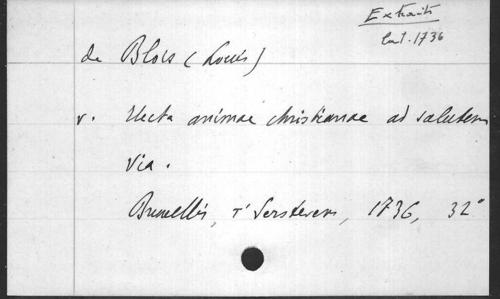 Extraits
lat. 1736
de Blois (Louis)
v. Recta animae christianae ad salutem
via.
Bruxellis, T'Serstevens, 1736, 32°